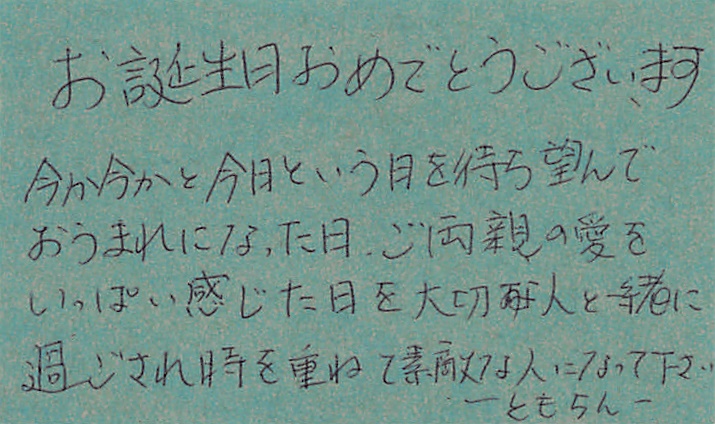 お誕生日おめでとうございます
今か今かと今日という日を待ち望んで
おうまれになった日、ご両親の愛を
いっぱい感じた日を大切な人と一緒に
過ごされ時を重ねて素敵な人になって下さい
ーともらんー